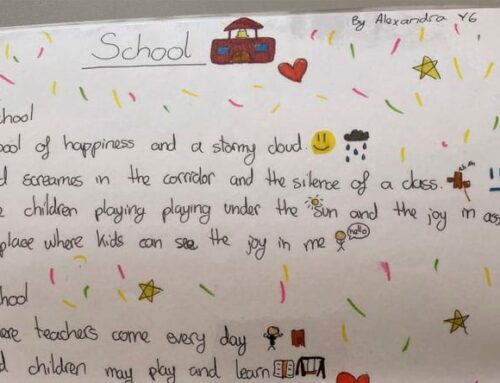 By Alexandra Y6
School
chool
ool of happiness and a stormy cloud.
d screames in the corridor and the silence of a class.
e children playing playing under the sun and the joy in ass
place where kids can see the joy in me hello
chool
ere teachers come every day
d children may play and learn